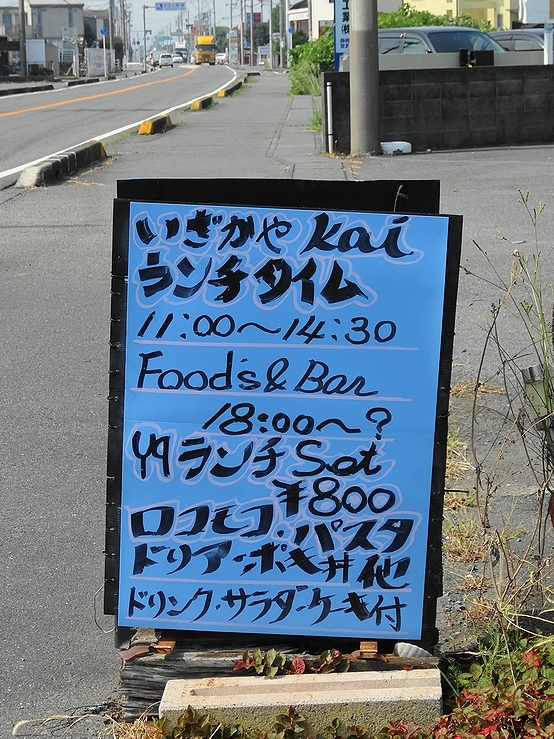 いざかや kai
ランチタイム
11:00〜14:30
Food's & Bar
18:00〜?
ランチ Set
¥800
ロコモコ・パスタ
ドリア・ポキ丼 他
ドリンク・サラダ・ケーキ付